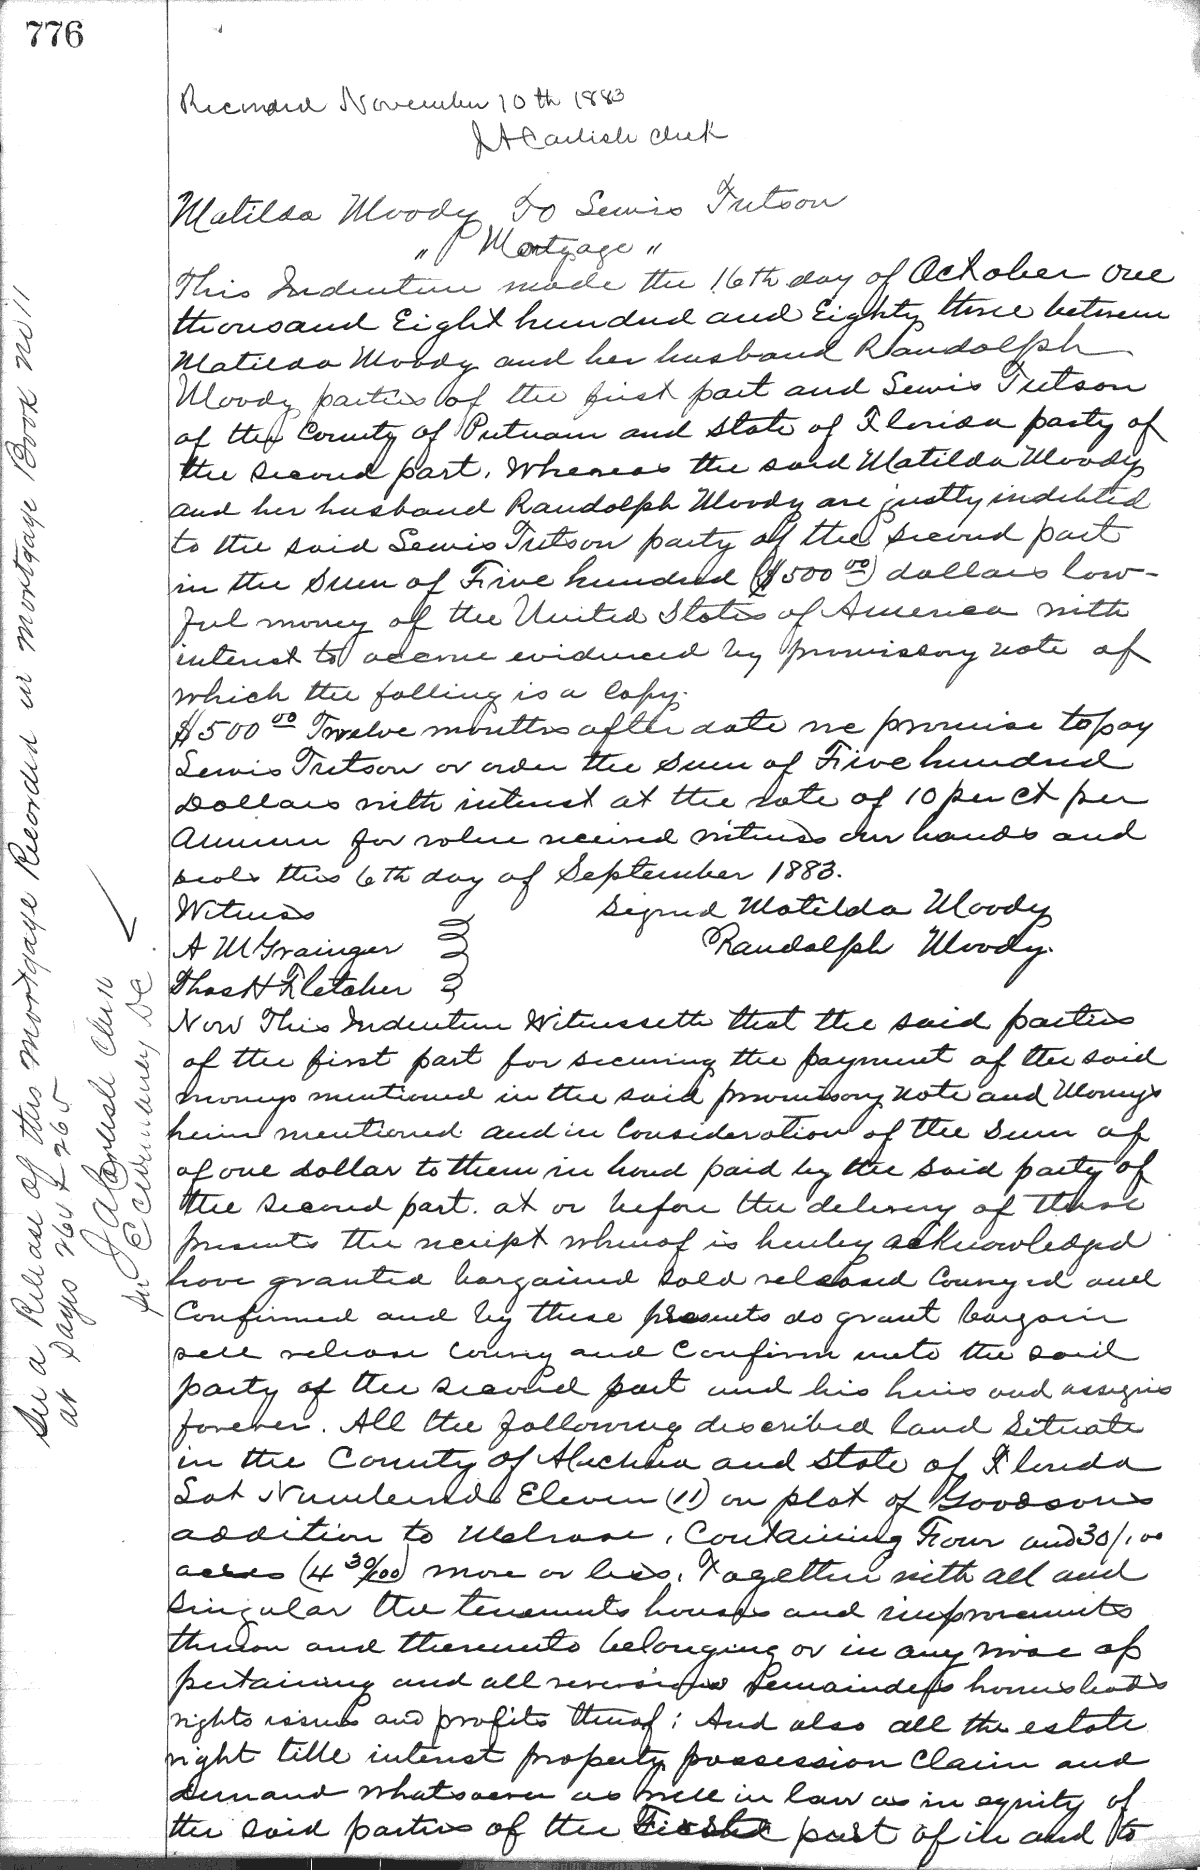 776
Recorded November 10th 1883
J A Carlisle Clerk
Matilda Moody To Lewis Tutson
" Mortgage "
This Indenture made the 16th day of October one
thousand Eight hundred and Eighty three between
Matilda Moody and her husband Randolph
Moody parties of the first part and Lewis Tutson
of the County of Putnam and State of Florida party of
the second part. Whereas the said Matilda Moody
and her husband Randolph Moody are justly indebted
to the said Lewis Tutson party of the second part
in the Sum of Five hundred ($500 00) dollars law-
ful money of the United States of America with
interest to accrue evidenced by promissory note of
which the folling is a Copy.
$500 00 Twelve months after date we promise to pay
Lewis Tutson or order the Sum of Five hundred
Dollars with interest at the rate of 10 per ct per
Annum for value received witness our hands and
seals this 6th day of September 1883.
Witness Signed Matilda Moody
A M Grainger Randolph Moody.
Thos H Fletcher
Now This Indenture Witnesseth that the said parties
of the first part for securing the payment of the said
moneys mentioned in the said promissory note and Moneys
herin mentioned and in Consideration of the Sum of
of one dollar to them in hand paid by the said party of
the second part. at or before the delivery of these
presents the receipt whereof is hereby acknowledged
have granted bargained sold released Conveyed and
Confirmed and by these presents do grant bargain
sell release convey and Confirm unto the said
party of the second part and his heirs and assigns
forever. All the following described land Situate
in the County of Alachua and State of Florida
Lot Numbered Eleven (11) on plat of Goodsons
addition to Melrose, Containing Four and 30/100
acres (4 30/100) more or less. Together with all and
Singular the tenements houses and improvements
thereon and thereunto belonging or in any wise ap
pertaining and all reversions Remainders homesteads
rights issues and profits thereof; And also all the estate
right title interest property possession Claim and
demand whatsoever as well in law as in equity of
the said parties of the First part of in and to
See a Release of this mortgage Recorded in Mortgage Book no 11
at Pages 264 & 265
J A Carlisle Clerk